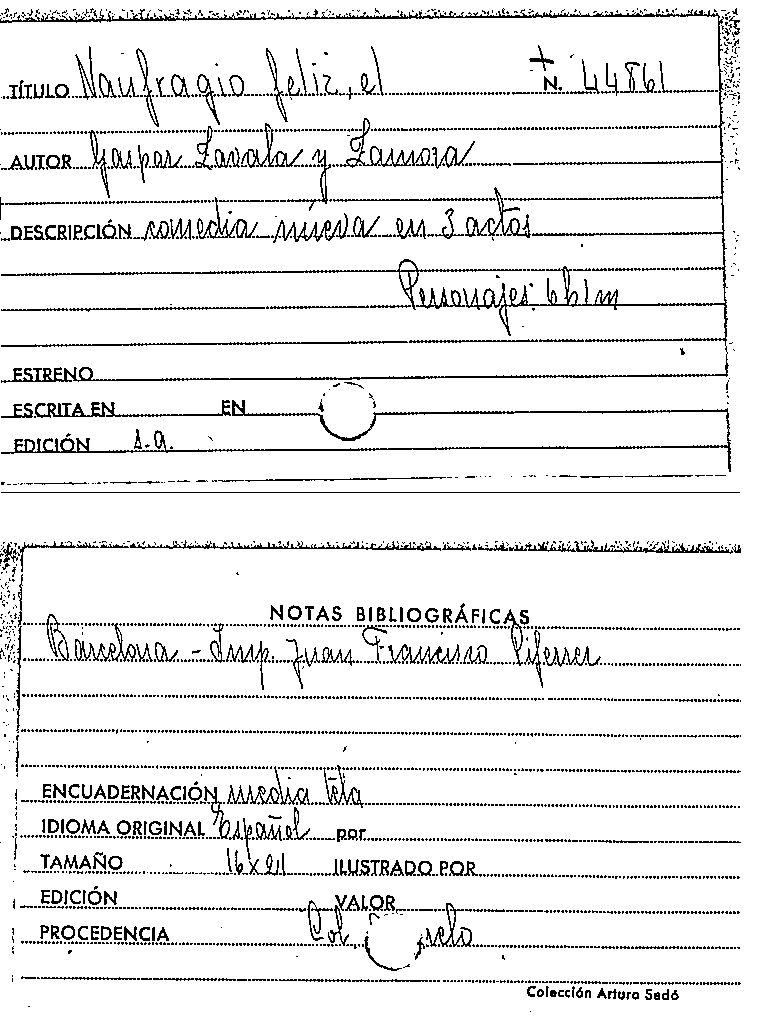 TÍTULO Naufragio feliz, el + N. 44861
AUTOR Gaspar Zavala y Zamora
DESCRIPCIÓN comedia nueva en 3 actos
Personajes: 6 h 1 m
ESTRENO
ESCRITA EN EN
EDICIÓN s.a.
NOTAS BIBLIOGRÁFICAS
Barcelona - Imp. Juan Francisco Piferrer
ENCUADERNACIÓN media tela
IDIOMA ORIGINAL Español por
TAMAÑO 16x21 ILUSTRADO POR
EDICIÓN VALOR
PROCEDENCIA Col.
Colección Arturo Sedó